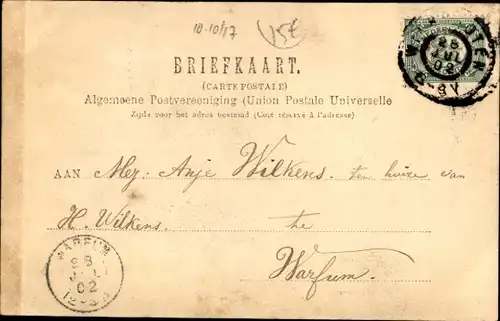 10-10/17
15£
BRIEFKAART.
(CARTE POSTALE)
Algemeene Postvereeniging (Union Postale Universelle
Zijde voor het adres bestemd (Coté réservé à l'adresse)
AAN Mej. Anje Wilkens. ten huize van
H. Wilkens. te
Warfum.
WARFUM
28
02
12-3
28
JUL
02